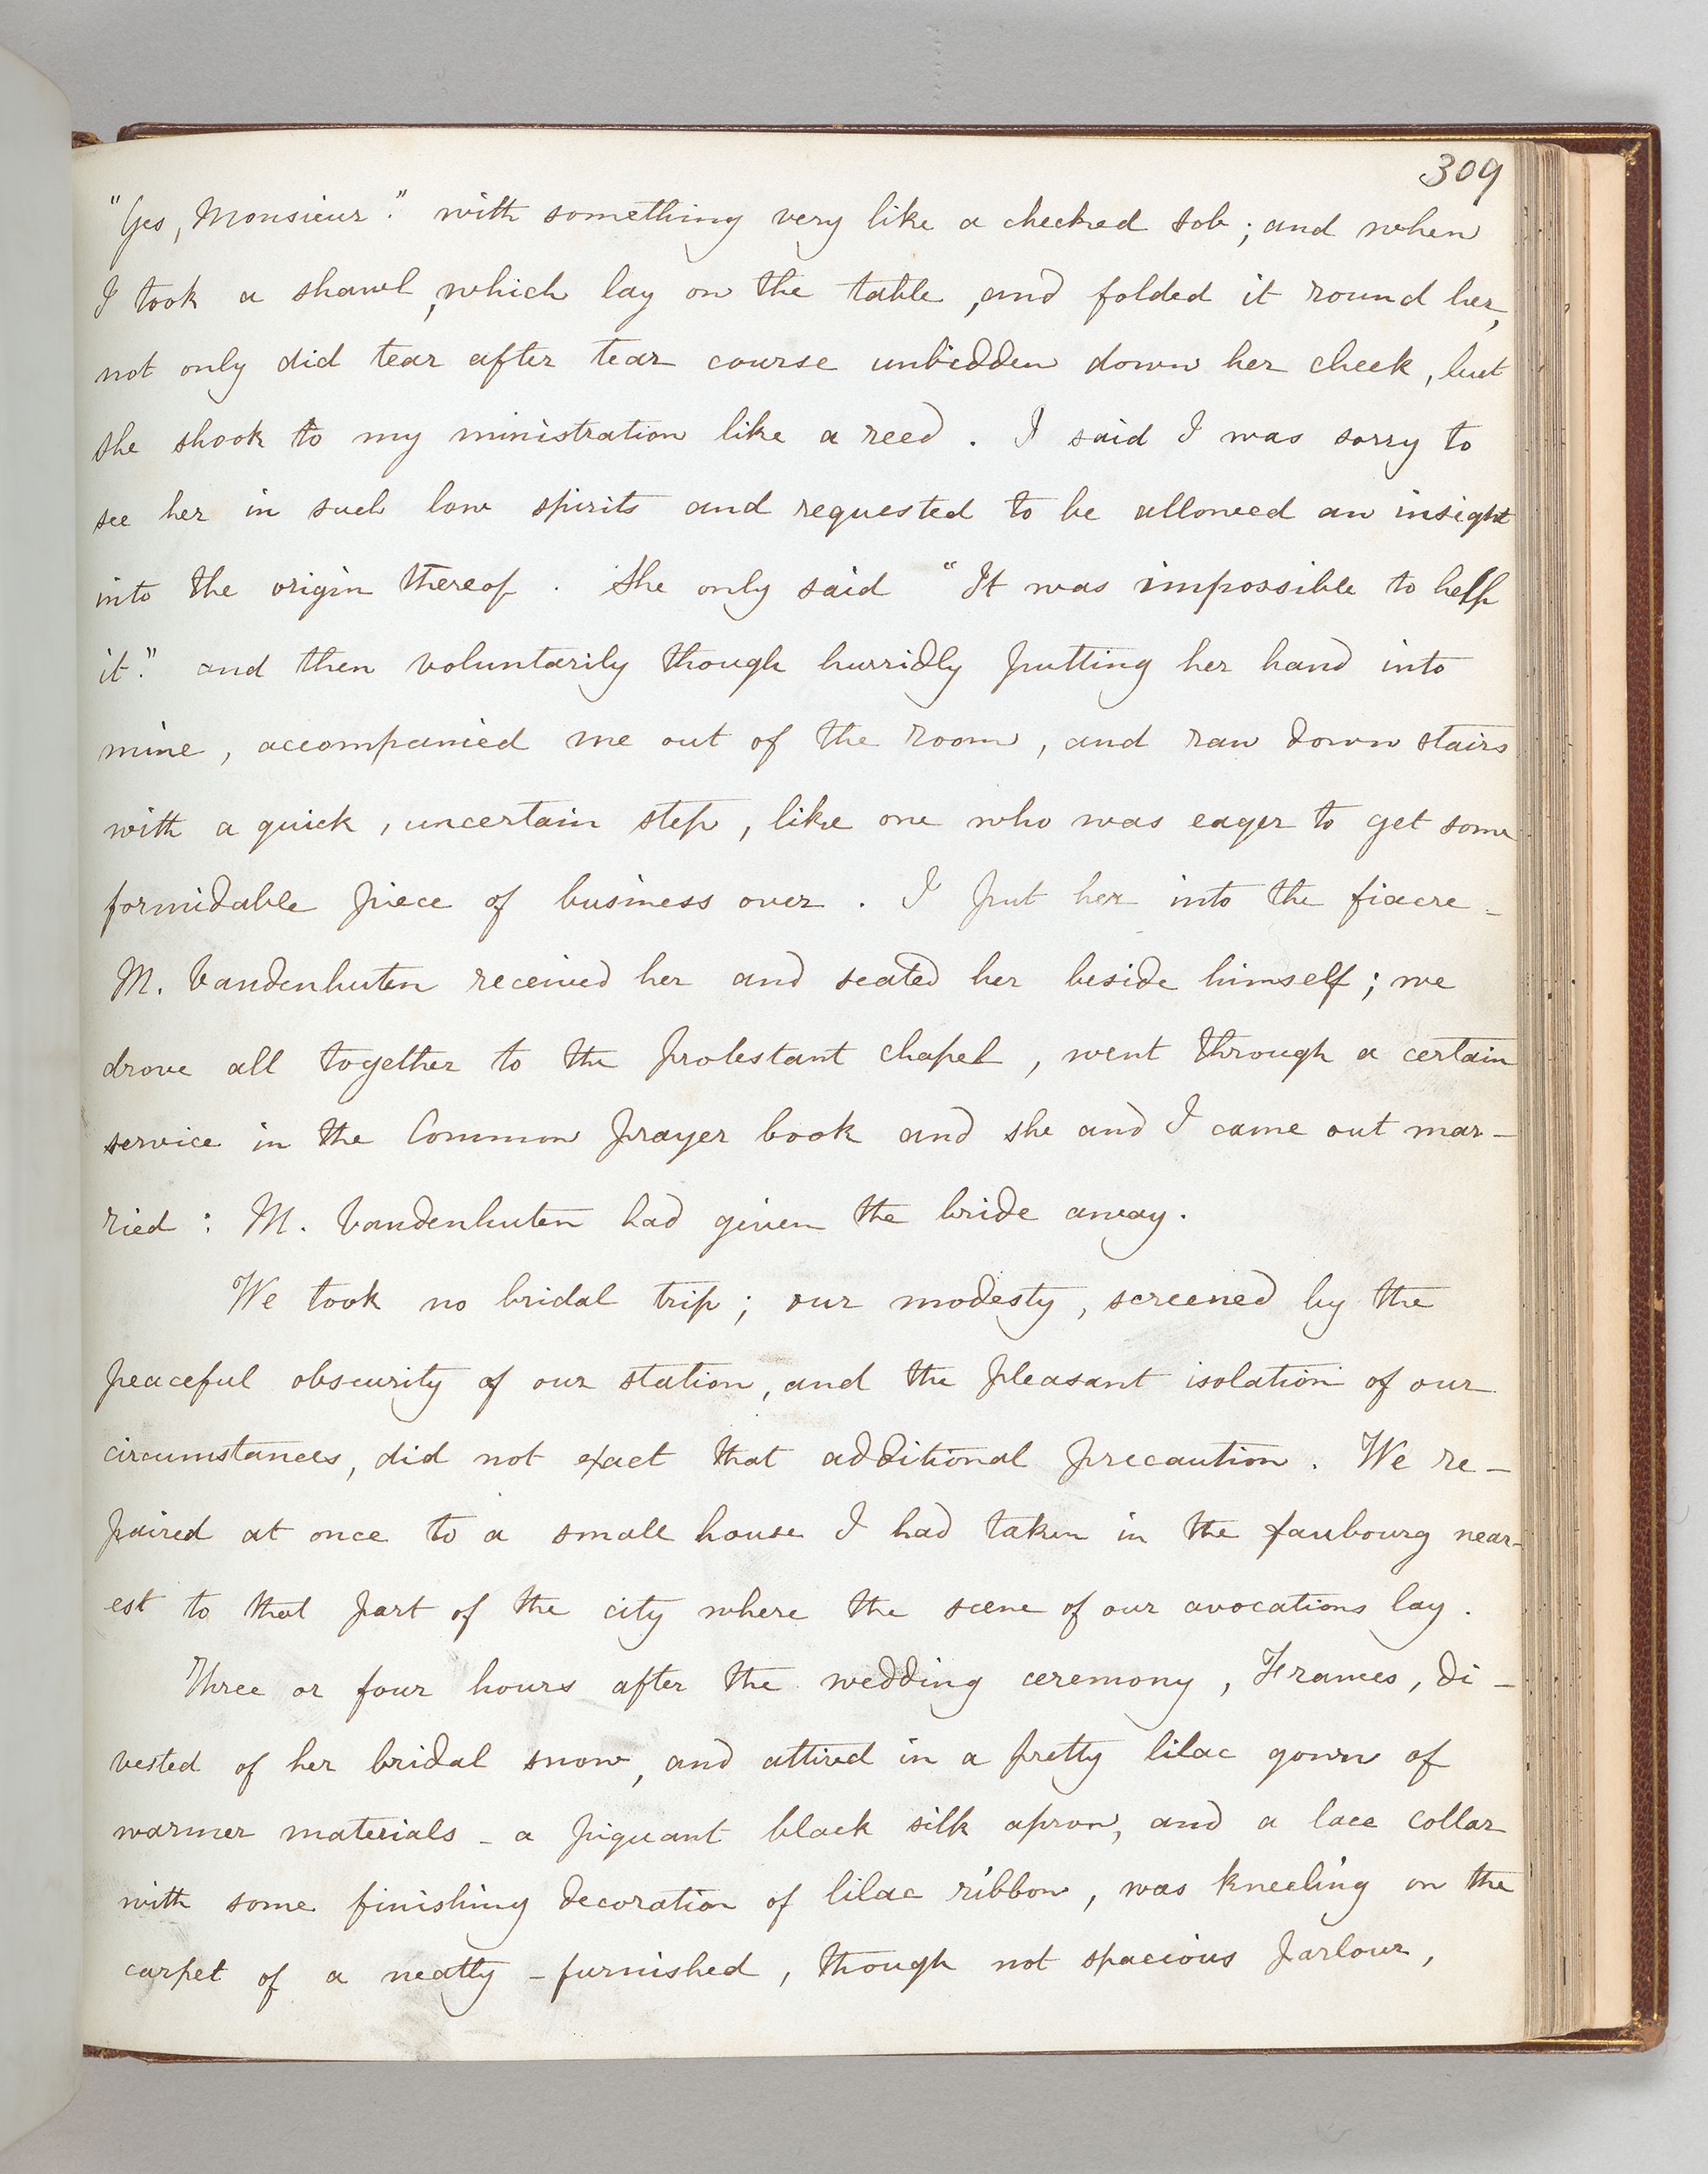 309
"Yes, Monsieur." with something very like a checked sob; and when
I took a shawl, which lay on the table, and folded it round her,
not only did tear after tear course unbidden down her cheek, but
she shook to my ministration like a reed. I said I was sorry to
see her in such low spirits and requested to be allowed an insight
into the origin thereof. She only said "It was impossible to help
it." and then voluntarily though hurridly putting her hand into
mine, accompanied me out of the room, and ran down stairs
with a quick, uncertain step, like one who was eager to get some
formidable piece of business over. I put her into the fiacre -
M. Vandenhuten received her and seated her beside himself; we
drove all together to the protestant chapel, went through a certain
service in the Common prayer book and she and I came out mar-
ried: M. Vandenhuten had given the bride away.
We took no bridal trip; our modesty, screened by the
peaceful obscurity of our station, and the pleasant isolation of our
circumstances, did not exact that additional precaution. We re-
paired at once to a small house I had taken in the faubourg near-
est to that part of the city where the scene of our avocations lay.
Three or four hours after the wedding ceremony, Frances, di-
vested of her bridal snow, and attired in a pretty lilac gown of
warmer materials - a piquant black silk apron, and a lace collar
with some finishing decoration of lilac ribbon, was kneeling on the
carpet of a neatly-furnished, though not spacious parlour,